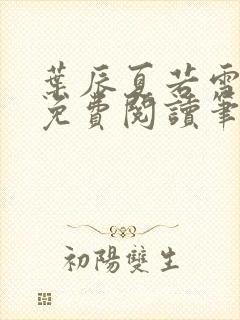 葉辰夏若雪
免費閱讀筆
初陽雙生